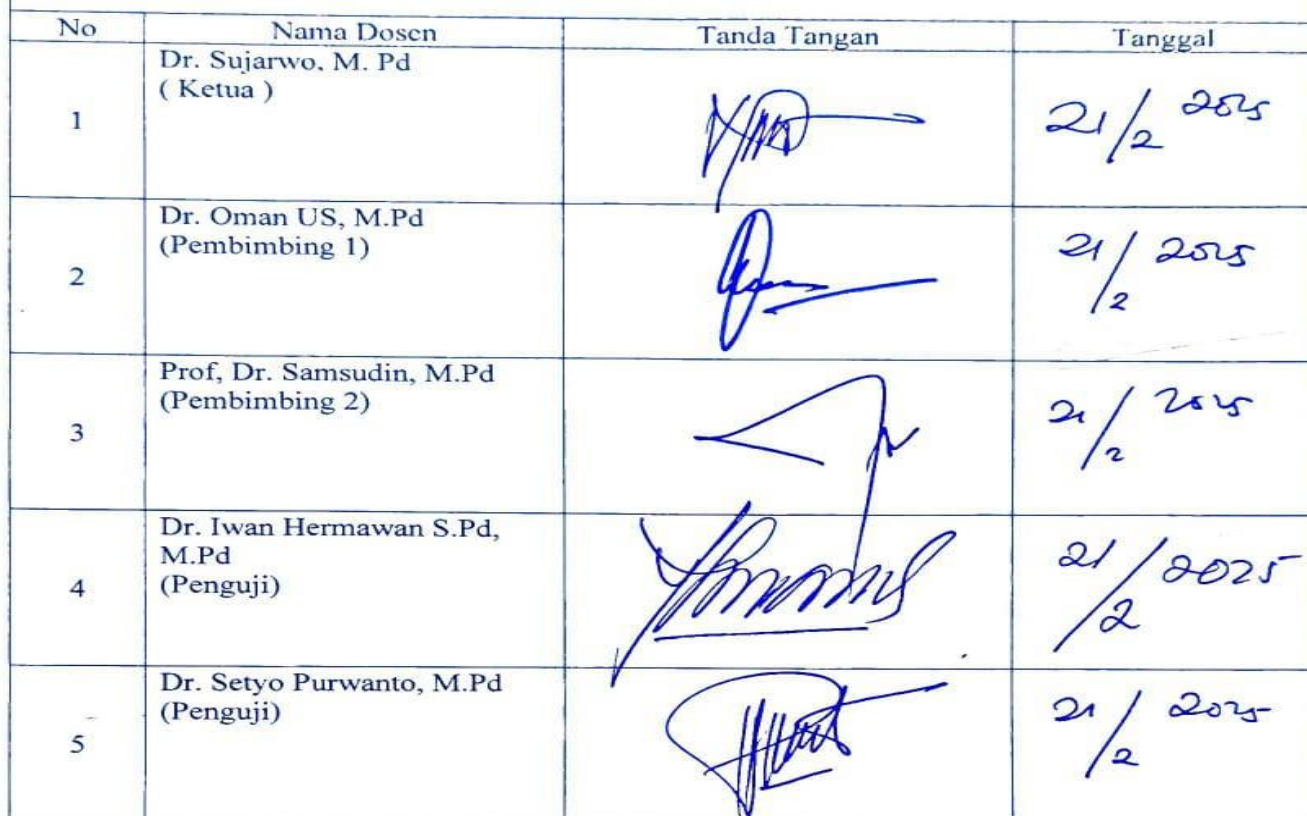 No Nama Dosen Tanda Tangan Tanggal
Dr. Sujarwo, M. Pd
( Ketua )
1 21/2 2025
Dr. Oman US, M.Pd
(Pembimbing 1)
2 21/2 2025
Prof, Dr. Samsudin, M.Pd
(Pembimbing 2)
3 21/2 2025
Dr. Iwan Hermawan S.Pd,
M.Pd
(Penguji)
4 21/2 2025
Dr. Setyo Purwanto, M.Pd
(Penguji)
5 21/2 2025